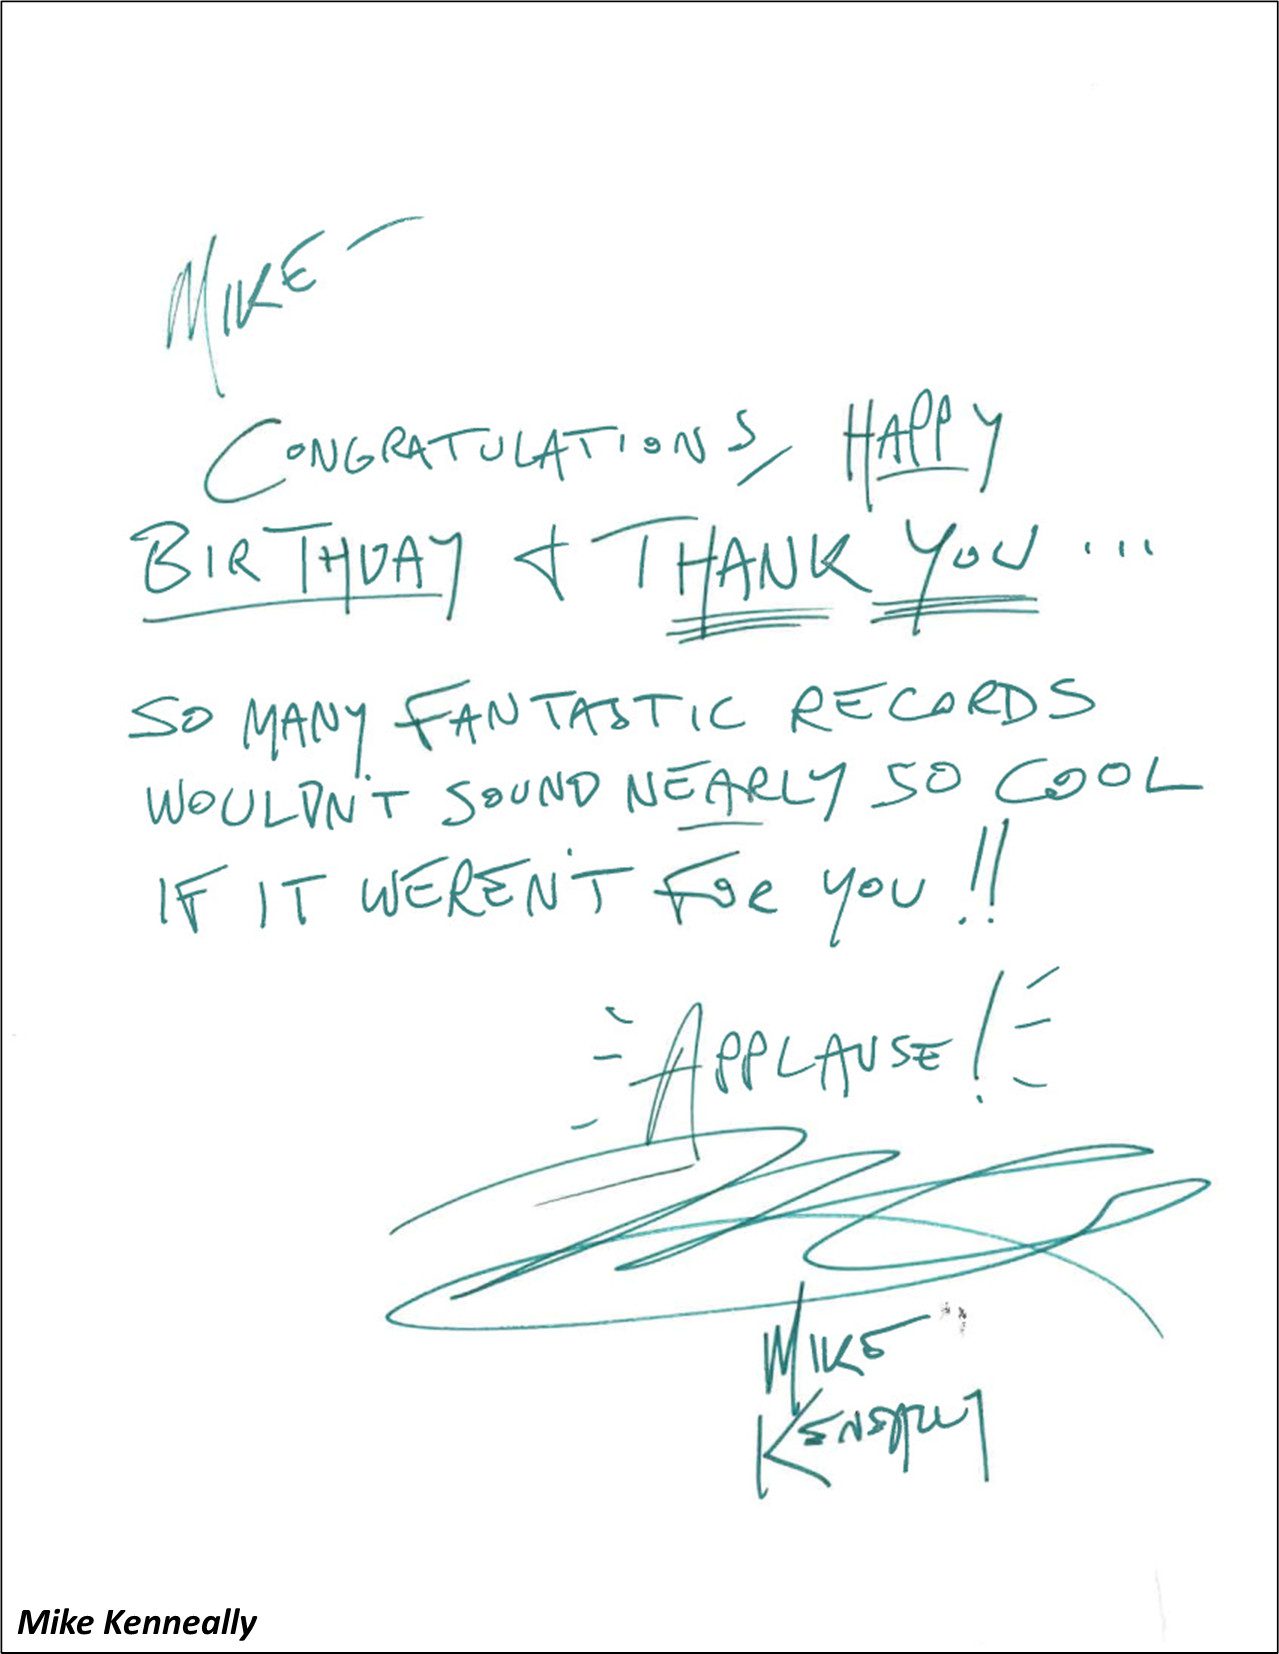 MIKE —
CONGRATULATIONS, HAPPY
BIRTHDAY & THANK YOU ...
SO MANY FANTASTIC RECORDS
WOULDN'T SOUND NEARLY SO COOL
IF IT WEREN'T FOR YOU!!
APPLAUSE!
MIKE
KENEALLY
Mike Kenneally